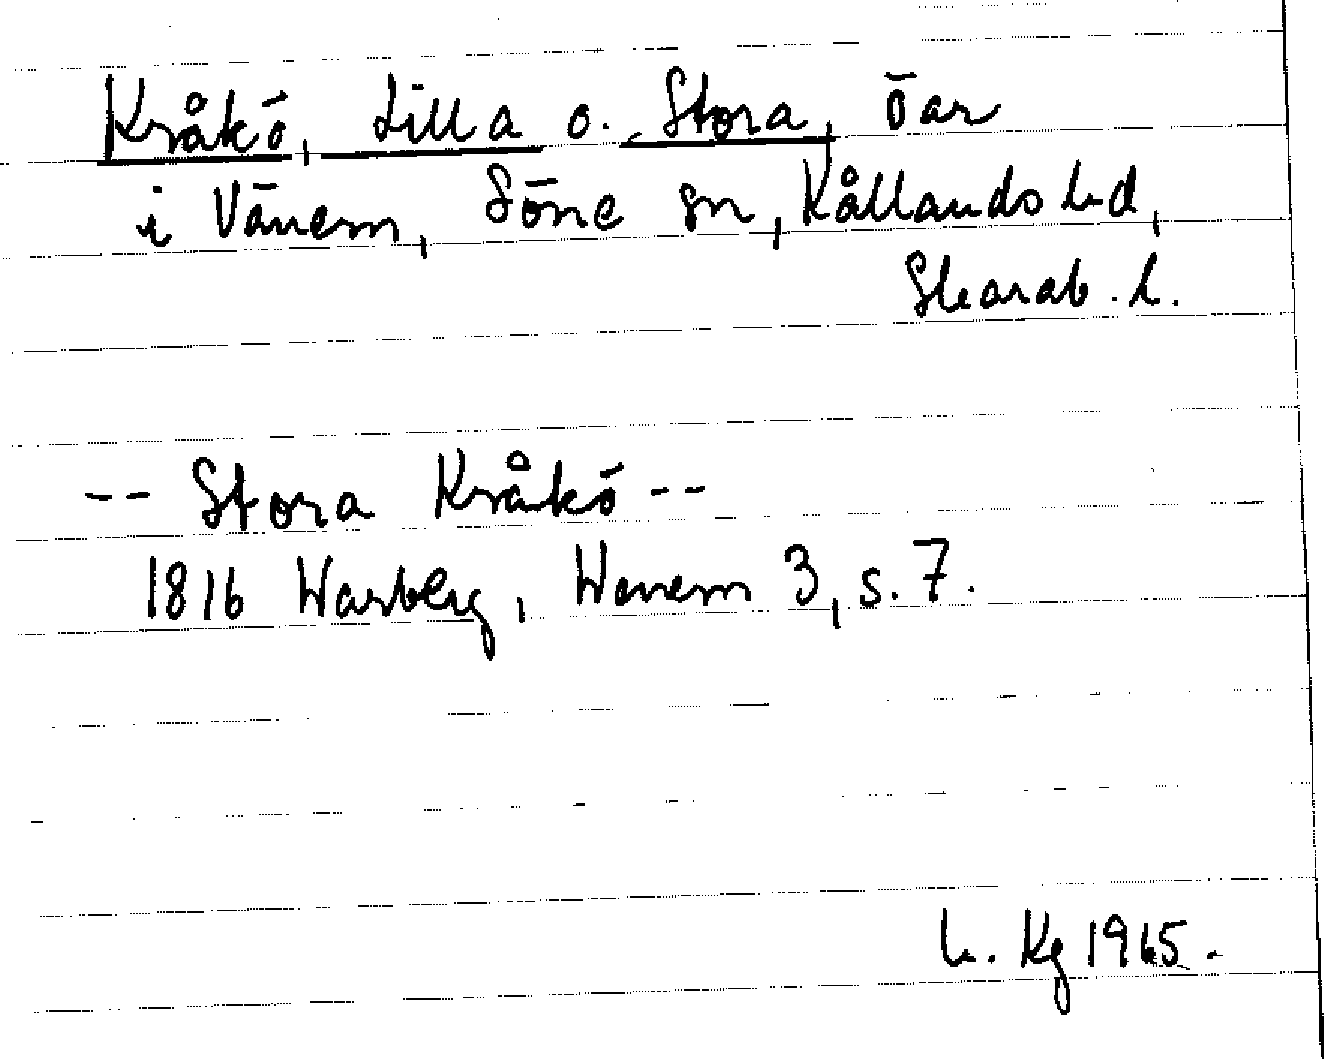 Kråkö, Lilla o. Stora, öar
i Vänern, Söne sn, Kållands hd,
Skarab. l.
-- Stora Kråkö --
1816 Warberg, Wenern 3, s. 7.
h. Kg 1965.